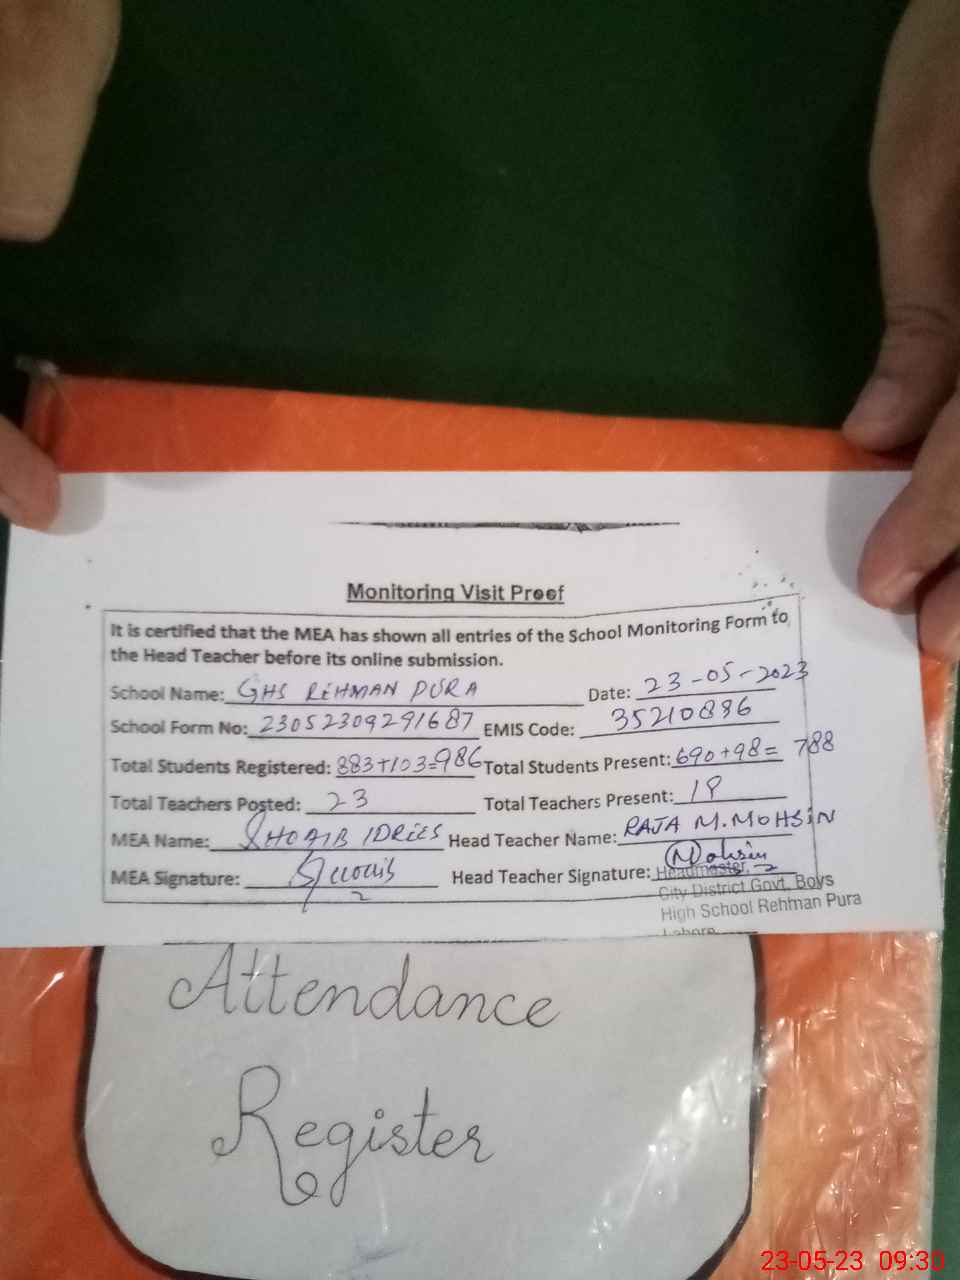 Monitoring Visit Proof
It is certified that the MEA has shown all entries of the School Monitoring Form to
the Head Teacher before its online submission.
School Name: GHS REHMAN PURA Date: 23-05-2023
School Form No: 23052309291687 EMIS Code: 35210886
Total Students Registered: 883+103=986 Total Students Present: 690+98= 788
Total Teachers Posted: 23 Total Teachers Present: 18
MEA Name: SHOAIB IDREES Head Teacher Name: RAJA M.MOHSIN
MEA Signature: Head Teacher Signature: Mohsin
Headmaster,
City District Govt. Boys
High School Rehman Pura
Lahore
Attendance
Register
23-05-23 09:30